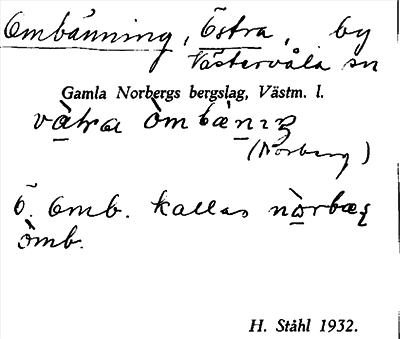 Ombänning, Östra, by
Västervåla sn
Gamla Norbergs bergslag, Västm. l.
vàtra òmbänıŋ
(Norberg)
Ö. Omb. kallas nòrbæ
òmb.
H. Ståhl 1932.